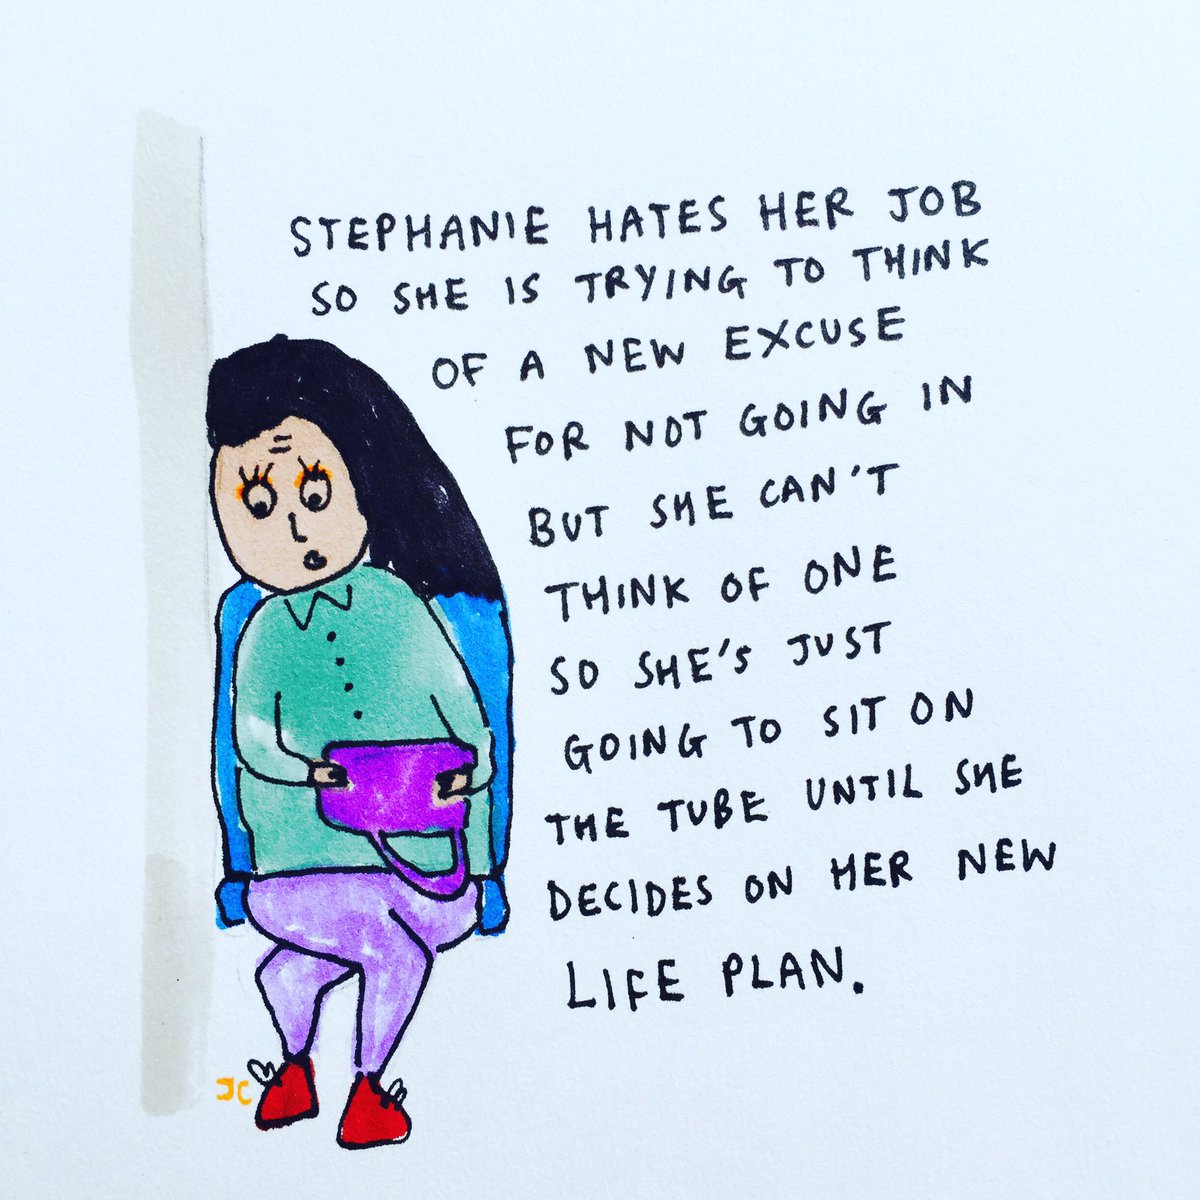 STEPHANIE HATES HER JOB
SO SHE IS TRYING TO THINK
OF A NEW EXCUSE
FOR NOT GOING IN
BUT SHE CAN'T
THINK OF ONE
SO SHE'S JUST
GOING TO SIT ON
THE TUBE UNTIL SHE
DECIDES ON HER NEW
LIFE PLAN.
JC